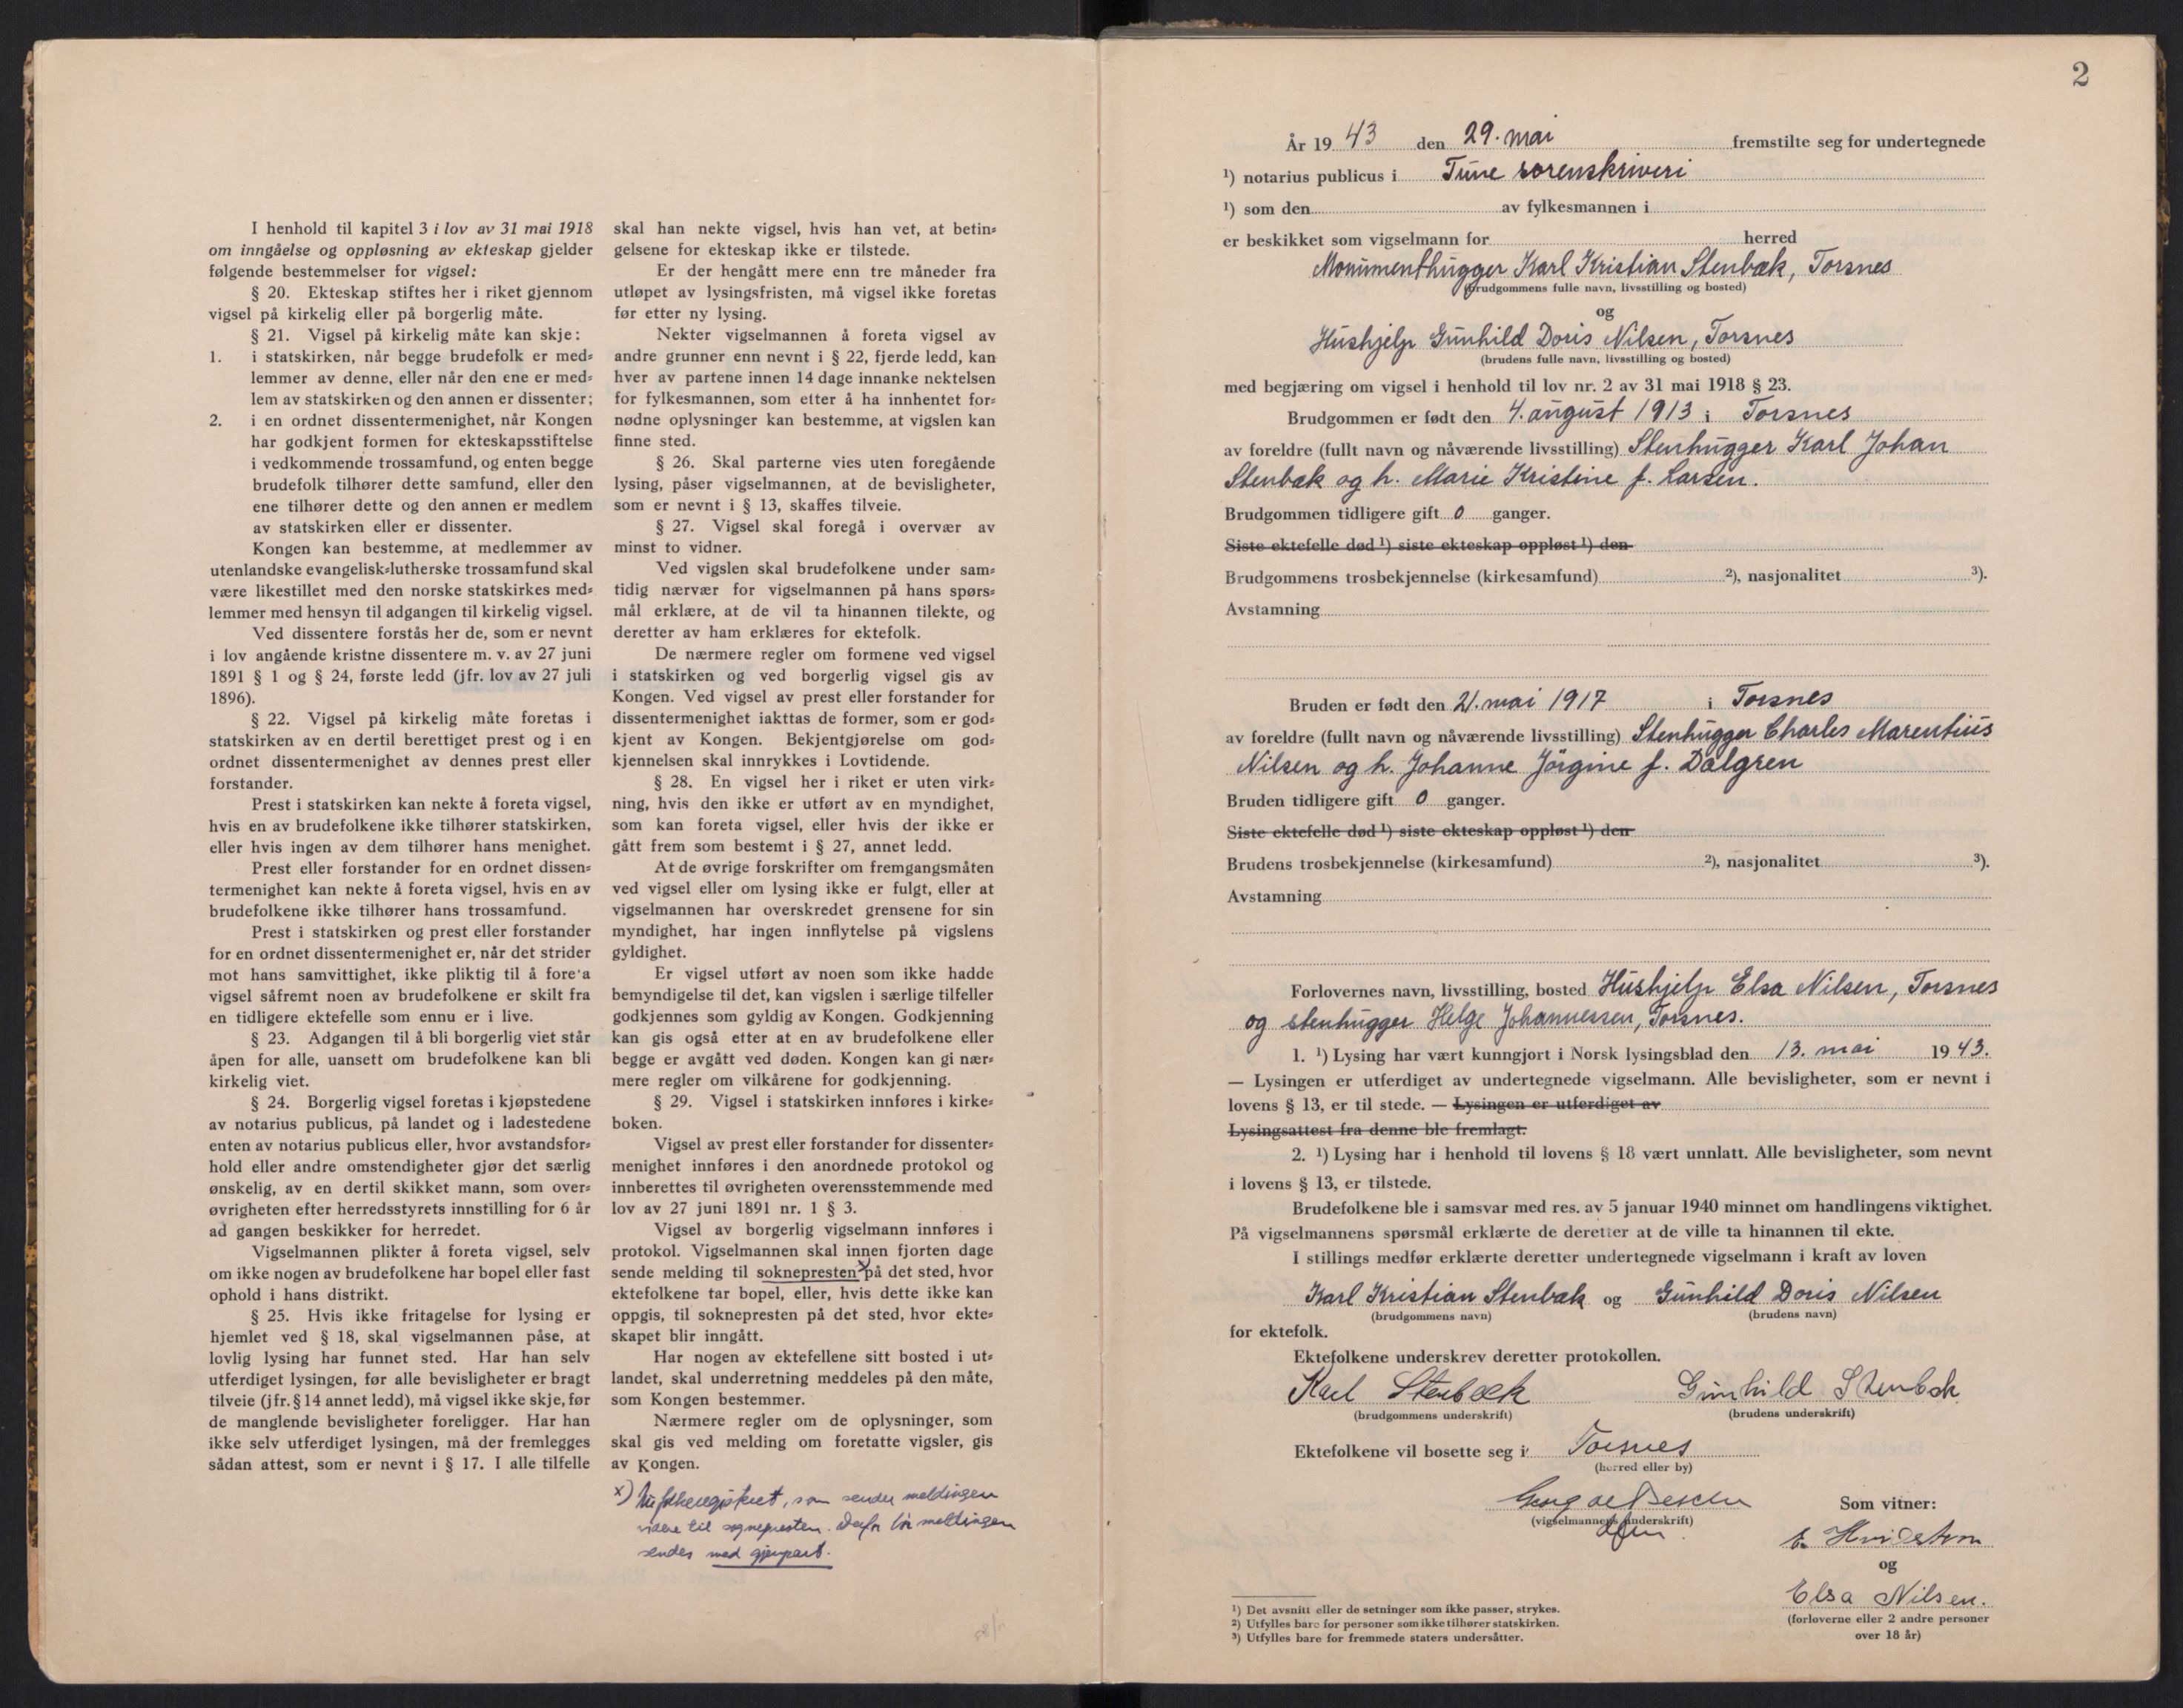 I henhold til kapitel 3 i lov av 31 mai 1918
om inngåelse og oppløsning av ekteskap gjelder
følgende bestemmelser for vigsel:
§ 20. Ekteskap stiftes her i riket gjennom
vigsel på kirkelig eller på borgerlig måte.
§ 21. Vigsel på kirkelig måte kan skje:
1. i statskirken, når begge brudefolk er med=
lemmer av denne, eller når den ene er med=
lem av statskirken og den annen er dissenter;
2. i en ordnet dissentermenighet, når Kongen
har godkjent formen for ekteskapsstiftelse
i vedkommende trossamfund, og enten begge
brudefolk tilhører dette samfund, eller den
ene tilhører dette og den annen er medlem
av statskirken eller er dissenter.
Kongen kan bestemme, at medlemmer av
utenlandske evangelisk=lutherske trossamfund skal
være likestillet med den norske statskirkes med=
lemmer med hensyn til adgangen til kirkelig vigsel.
Ved dissentere forstås her de, som er nevnt
i lov angående kristne dissentere m. v. av 27 juni
1891 § 1 og § 24, første ledd (jfr. lov av 27 juli
1896).
§ 22. Vigsel på kirkelig måte foretas i
statskirken av en dertil berettiget prest og i en
ordnet dissentermenighet av dennes prest eller
forstander.
Prest i statskirken kan nekte å foreta vigsel,
hvis en av brudefolkene ikke tilhører statskirken,
eller hvis ingen av dem tilhører hans menighet.
Prest eller forstander for en ordnet dissen=
termenighet kan nekte å foreta vigsel, hvis en av
brudefolkene ikke tilhører hans trossamfund.
Prest i statskirken og prest eller forstander
for en ordnet dissentermenighet er, når det strider
mot hans samvittighet, ikke pliktig til å fore'a
vigsel såfremt noen av brudefolkene er skilt fra
en tidligere ektefelle som ennu er i live.
§ 23. Adgangen til å bli borgerlig viet står
åpen for alle, uansett om brudefolkene kan bli
kirkelig viet.
§ 24. Borgerlig vigsel foretas i kjøpstedene
av notarius publicus, på landet og i ladestedene
enten av notarius publicus eller, hvor avstandsfor=
hold eller andre omstendigheter gjør det særlig
ønskelig, av en dertil skikket mann, som over=
øvrigheten efter herredsstyrets innstilling for 6 år
ad gangen beskikker for herredet.
Vigselmannen plikter å foreta vigsel, selv
om ikke nogen av brudefolkene har bopel eller fast
ophold i hans distrikt.
§ 25. Hvis ikke fritagelse for lysing er
hjemlet ved § 18, skal vigselmannen påse, at
lovlig lysing har funnet sted. Har han selv
utferdiget lysingen, før alle bevisligheter er bragt
tilveie (jfr. § 14 annet ledd), må vigsel ikke skje, før
de manglende bevisligheter foreligger. Har han
ikke selv utferdiget lysingen, må der fremlegges
sådan attest, som er nevnt i § 17. I alle tilfelle
skal han nekte vigsel, hvis han vet, at betin=
gelsene for ekteskap ikke er tilstede.
Er der hengått mere enn tre måneder fra
utløpet av lysingsfristen, må vigsel ikke foretas
før etter ny lysing.
Nekter vigselmannen å foreta vigsel av
andre grunner enn nevnt i § 22, fjerde ledd, kan
hver av partene innen 14 dage innanke nektelsen
for fylkesmannen, som etter å ha innhentet for=
nødne oplysninger kan bestemme, at vigslen kan
finne sted.
§ 26. Skal parterne vies uten foregående
lysing, påser vigselmannen, at de bevisligheter,
som er nevnt i § 13, skaffes tilveie.
§ 27. Vigsel skal foregå i overvær av
minst to vidner.
Ved vigslen skal brudefolkene under sam=
tidig nærvær for vigselmannen på hans spørs=
mål erklære, at de vil ta hinannen tilekte, og
deretter av ham erklæres for ektefolk.
De nærmere regler om formene ved vigsel
i statskirken og ved borgerlig vigsel gis av
Kongen. Ved vigsel av prest eller forstander for
dissentermenighet iakttas de former, som er god=
kjent av Kongen. Bekjentgjørelse om god=
kjennelsen skal innrykkes i Lovtidende.
§ 28. En vigsel her i riket er uten virk=
ning, hvis den ikke er utført av en myndighet,
som kan foreta vigsel, eller hvis der ikke er
gått frem som bestemt i § 27, annet ledd.
At de øvrige forskrifter om fremgangsmåten
ved vigsel eller om lysing ikke er fulgt, eller at
vigselmannen har overskredet grensene for sin
myndighet, har ingen innflytelse på vigslens
gyldighet.
Er vigsel utført av noen som ikke hadde
bemyndigelse til det, kan vigslen i særlige tilfeller
godkjennes som gyldig av Kongen. Godkjenning
kan gis også etter at en av brudefolkene eller
begge er avgått ved døden. Kongen kan gi nær=
mere regler om vilkårene for godkjenning.
§ 29. Vigsel i statskirken innføres i kirke=
boken.
Vigsel av prest eller forstander for dissenter=
menighet innføres i den anordnede protokol og
innberettes til øvrigheten overensstemmende med
lov av 27 juni 1891 nr. 1 § 3.
Vigsel av borgerlig vigselmann innføres i
protokol. Vigselmannen skal innen fjorten dage
sende melding til soknepresten x på det sted, hvor
ektefolkene tar bopel, eller, hvis dette ikke kan
oppgis, til soknepresten på det sted, hvor ekte=
skapet blir inngått.
Har nogen av ektefellene sitt bosted i ut=
landet, skal underretning meddeles på den måte,
som Kongen bestemmer.
Nærmere regler om de oplysninger, som
skal gis ved melding om foretatte vigsler, gis
av Kongen.
x) som sender meldingen
videre til sognepresten. Derfor bør meldingen
sendes med gjenpart.
2
År 19 43 den 29. mai fremstilte seg for undertegnede
¹) notarius publicus i Tune sorenskriveri
¹) som den av fylkesmannen i
er beskikket som vigselmann for herred
Monumenthugger Karl Kristian Stenbæk, Torsnes
(brudgommens fulle navn, livsstilling og bosted)
og
Hushjelp Gunhild Doris Nilsen, Torsnes
(brudens fulle navn, livsstilling og bosted)
med begjæring om vigsel i henhold til lov nr. 2 av 31 mai 1918 § 23.
Brudgommen er født den 4. august 1913 i Torsnes
av foreldre (fullt navn og nåværende livsstilling) Stenhugger Karl Johan
Stenbæk og h. Marie Kristine f. Larsen.
Brudgommen tidligere gift 0 ganger.
Siste ektefelle død ¹) siste ekteskap oppløst ¹) den
Brudgommens trosbekjennelse (kirkesamfund) ²), nasjonalitet ³).
Avstamning
Bruden er født den 21. mai 1917 i Torsnes
av foreldre (fullt navn og nåværende livsstilling) Stenhugger Charles Marentius
Nilsen og h. Johanne Jörgine f. Dalgren
Bruden tidligere gift 0 ganger.
Siste ektefelle død ¹) siste ekteskap oppløst ¹) den
Brudens trosbekjennelse (kirkesamfund) ²), nasjonalitet ³).
Avstamning
Forlovernes navn, livsstilling, bosted Hushjelp Elsa Nilsen, Torsnes
og stenhugger Helge Johannessen, Torsnes.
1. ¹) Lysing har vært kunngjort i Norsk lysingsblad den 13. mai 19 43.
— Lysingen er utferdiget av undertegnede vigselmann. Alle bevisligheter, som er nevnt i
lovens § 13, er til stede. — Lysingen er utferdiget av
Lysingsattest fra denne ble fremlagt.
2. ¹) Lysing har i henhold til lovens § 18 vært unnlatt. Alle bevisligheter, som nevnt
i lovens § 13, er tilstede.
Brudefolkene ble i samsvar med res. av 5 januar 1940 minnet om handlingens viktighet.
På vigselmannens spørsmål erklærte de deretter at de ville ta hinannen til ekte.
I stillings medfør erklærte deretter undertegnede vigselmann i kraft av loven
Karl Kristian Stenbæk og Gunhild Doris Nilsen
(brudgommens navn) (brudens navn)
for ektefolk.
Ektefolkene underskrev deretter protokollen.
Karl Stenbæk Gunhild Stenbæk
(brudgommens underskrift) (brudens underskrift)
Ektefolkene vil bosette seg i Torsnes
(herred eller by)
Som vitner:
(vigselmannens underskrift)
E.
og
Elsa Nilsen.
(forloverne eller 2 andre personer
over 18 år)
¹) Det avsnitt eller de setninger som ikke passer, strykes.
²) Utfylles bare for personer som ikke tilhører statskirken.
³) Utfylles bare for fremmede staters undersåtter.